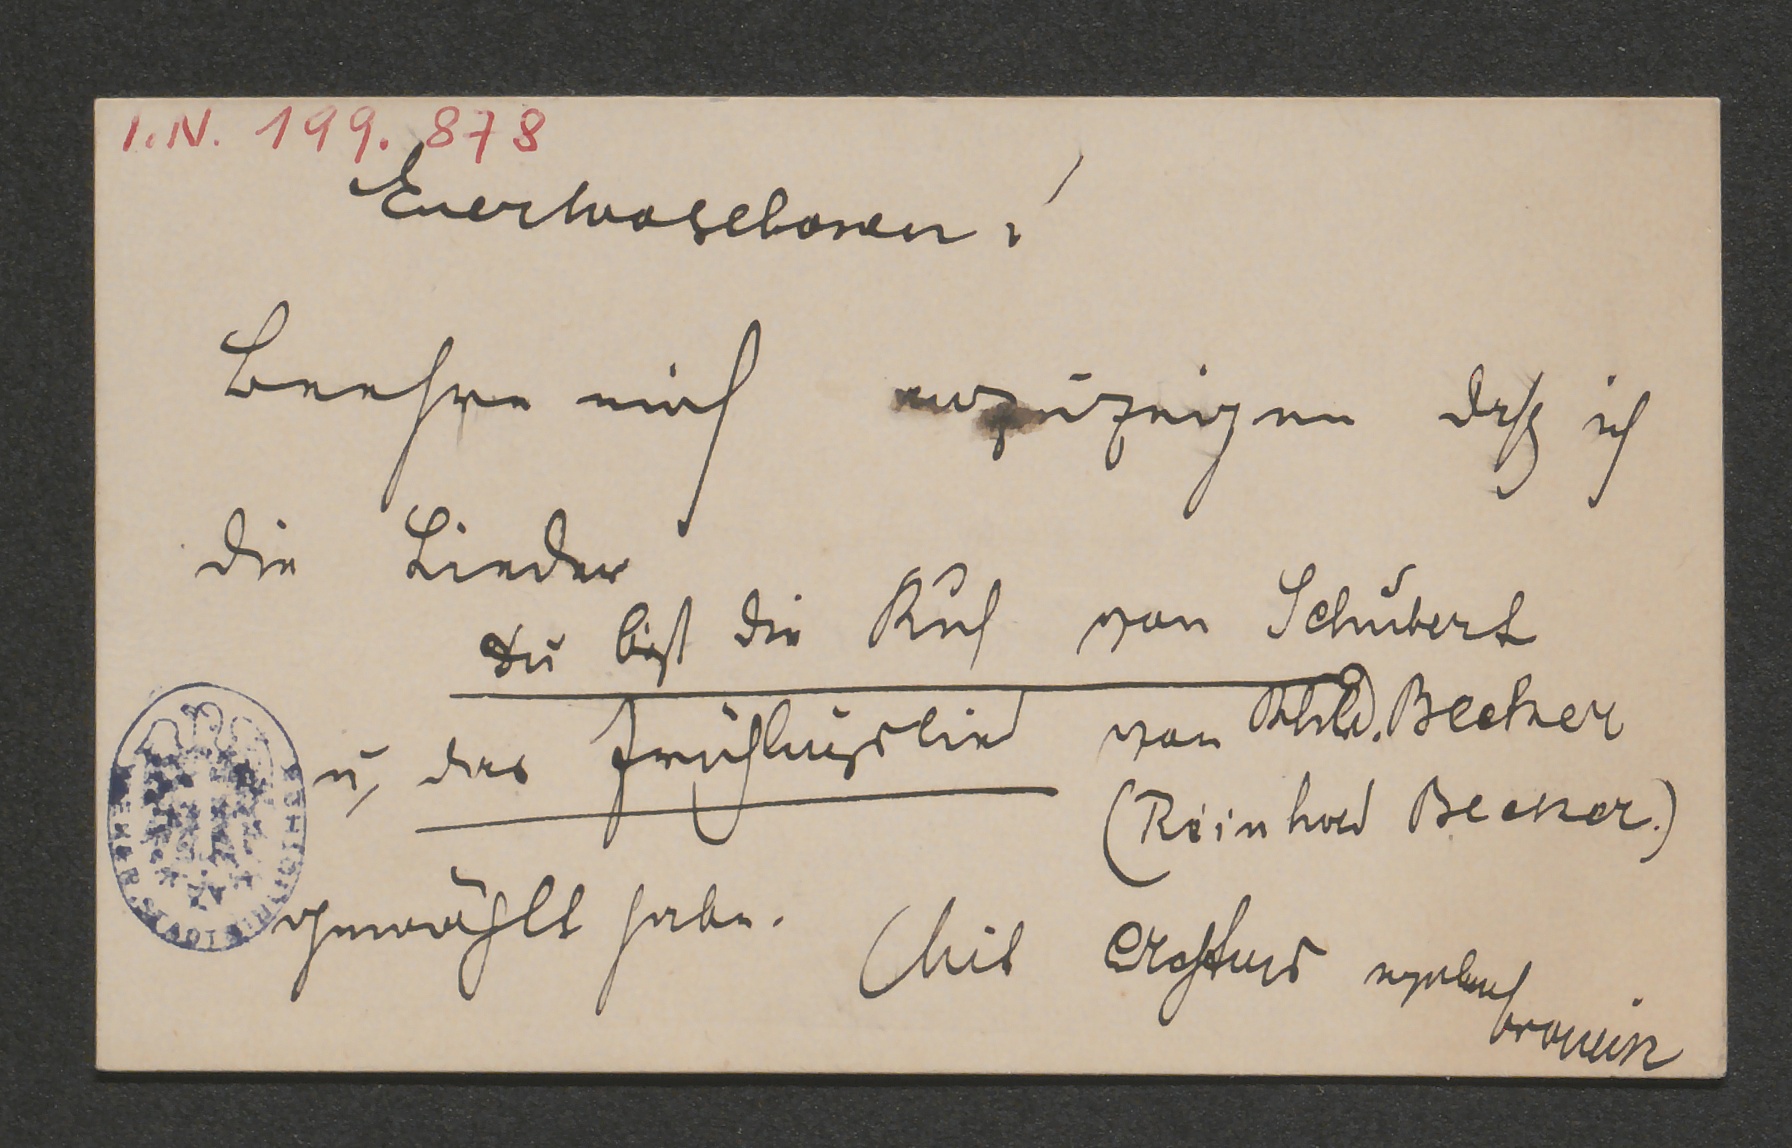 I.N. 199.878
Euerhochgeboren!
Beehre mich anzuzeigen daß ich
die Lieder
Du bist die Ruh von Schubert
u, das Frühlingslied von Becker
(Reinhold Becker.)
gewählt habe.
Mit Achtung ergebenst